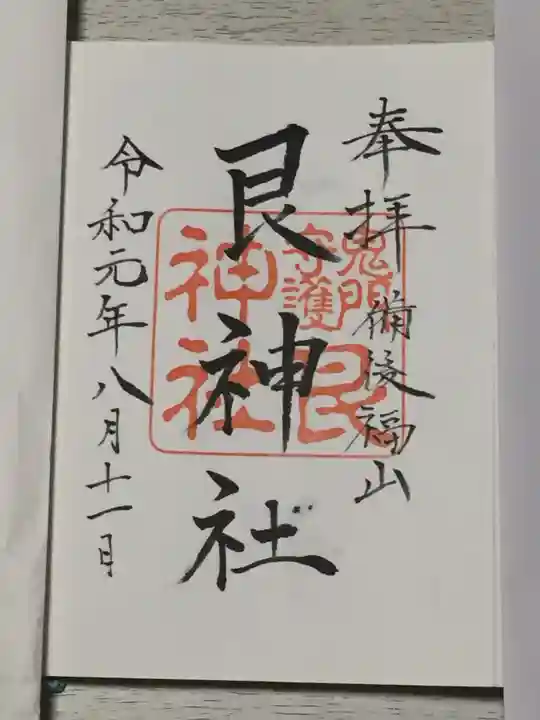 奉拝 備後福山
艮神社
鬼門
守護
艮
神社
令和元年八月十一日